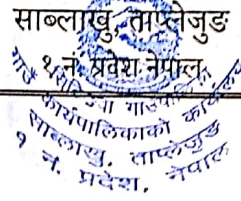 साब्लाखु, ताप्लेजुङ
१ नं. प्रदेश, नेपाल
गाउँ कार्यपालिकाको कार्यालय
साब्लाखु, ताप्लेजुङ
१ नं. प्रदेश, नेपाल